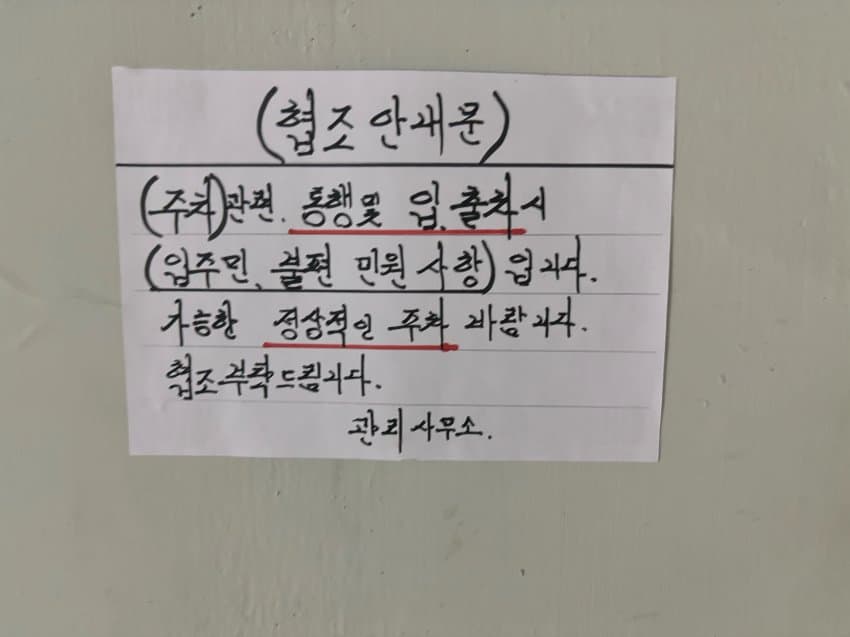 (협조안내문)
(주차)관련. 통행및 입.출차시
(입주민. 불편 민원 사항) 입니다.
가능한 정상적인 주차 바랍니다.
협조부탁드립니다.
관리사무소.